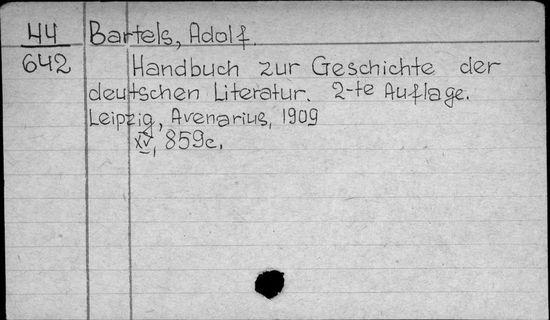 44 Bartels, Adolf.
642 Handbuch zur Geschichte der
deutschen Literatur. 2-te Auflage.
Leipzig, Avenarius, 1909
XV, 859c.